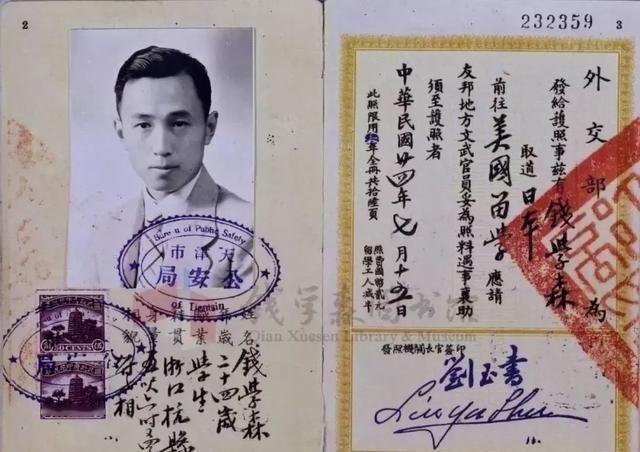 2
Bureau of Public Safety
天津市
公安局
of Tientsin
姓名 錢學森
年歲 二十四歲
職業 學生
籍貫 浙江杭縣
身量
相貌
232359
3
外交部 為
發給護照事茲有 錢學森
取道日本
前往美國留學應請
友邦地方文武官員妥為照料遇事襄助
須至護照者
中華民國廿四年七月十五日
此照限用 年全冊共拾陸頁
照費國幣貳
留學工人減半
钱学森图书馆
Qian Xuesen Library & Museum
發照機關長官簽印
劉玉書